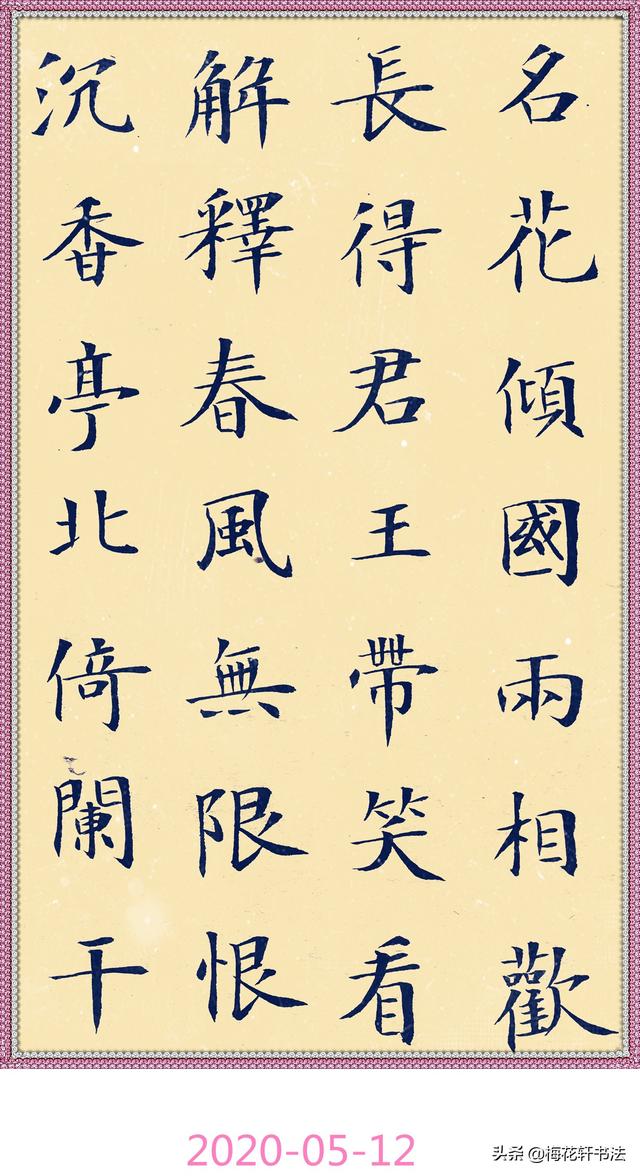 名花傾國兩相歡
長得君王帶笑看
解釋春風無限恨
沉香亭北倚闌干
2020-05-12
头条 @梅花轩书法